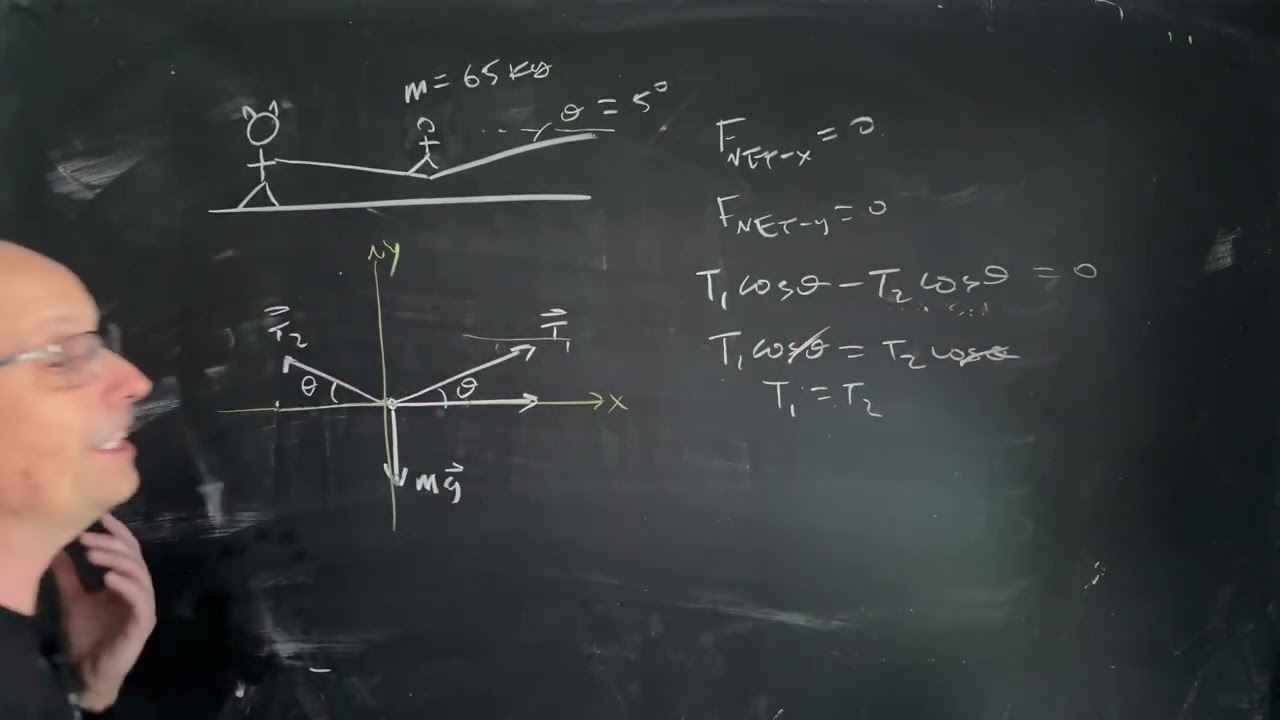 m = 65 kg
θ = 5°
y
T⃗₂
T⃗₁
θ
θ
x
mg⃗
F_NET-x = 0
F_NET-y = 0
T₁ cosθ – T₂ cosθ = 0
T₁ cosθ = T₂ cosθ
T₁ = T₂